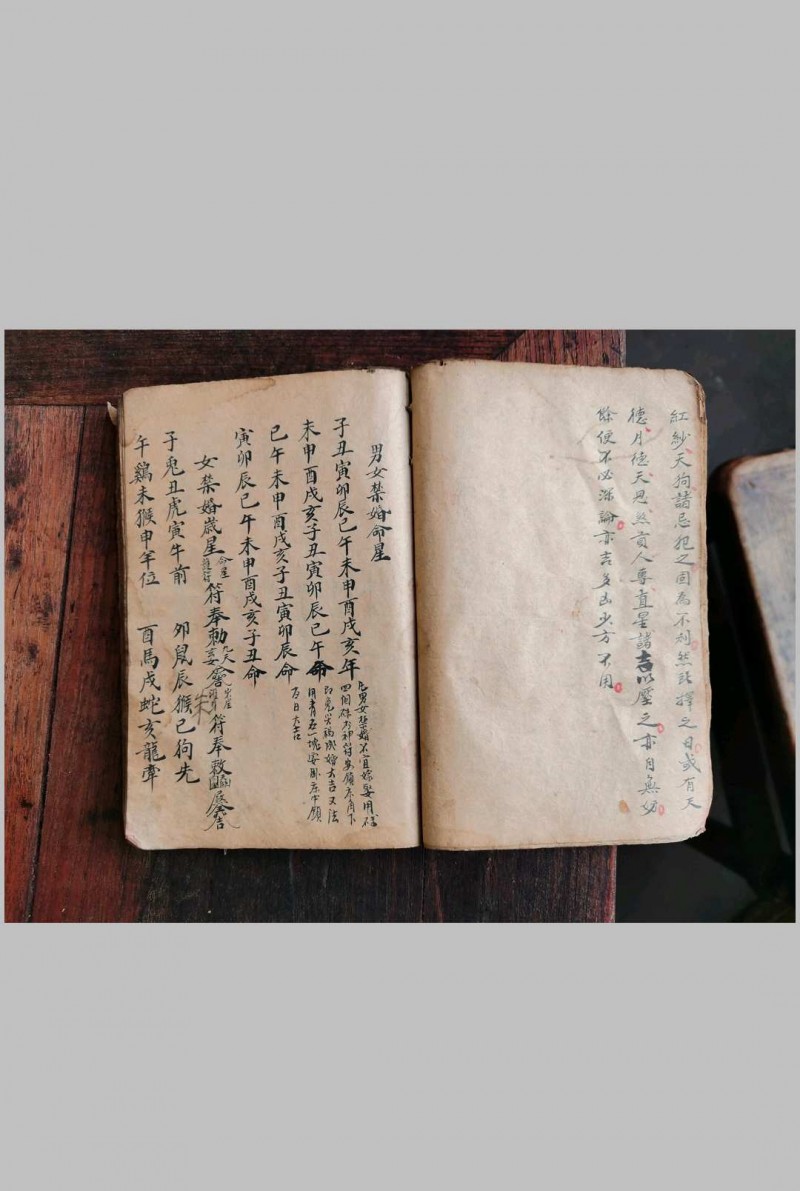 紅紗天狗諸忌犯之固為不利然所擇之日或有天
德月德天恩然貴人尊直星諸吉以壓之亦自無妨
餘便不必深論亦吉多凶少方不用
男女禁婚命星
子丑寅卯辰巳午未申酉戌亥年
未申酉戌亥子丑寅卯辰巳午命
巳午未申酉戌亥子丑寅卯辰命
寅卯辰巳午未申酉戌亥子丑命
凡男女禁婚不宜嫁娶用磚
四個硃為神符安領床角下
即免災禍成婚大吉又法
用青瓦一塊安卧床中
女禁婚歲星
符奉勅
符奉敕
子兎丑虎寅牛前
卯鼠辰猴巳狗先
午鷄未猴申羊位
酉馬戌蛇亥龍牽
朱